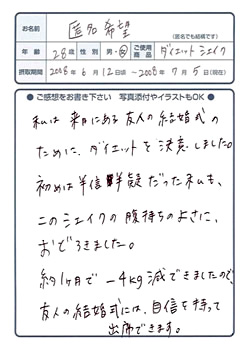 お名前 匿名希望
(匿名でも結構です)
年齢 28歳 性別 男・女 ご使用商品 ダイエットシェイク
摂取期間 2008年6月12日頃 〜2008年7月5日(現在)
●ご感想をお書き下さい 写真添付やイラストもOK●
私は来月にある友人の結婚式の
ために、ダイエットを決意しました。
初めは半信半疑だった私も、
このシェイクの腹持ちのよさに、
おどろきました。
約1ヶ月で−4kg減できましたので、
友人の結婚式には、自信を持って
出席できます。